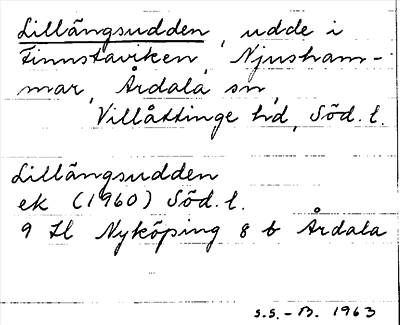 Lillängsudden, udde i
Finnstaviken, Njusham-
mar, Årdala sn,
Villåttinge hd, Söd. l.
Lillängsudden
ek (1960) Söd. l.
9 Hl Nyköping 8 b Årdala
S.S. - B. 1963